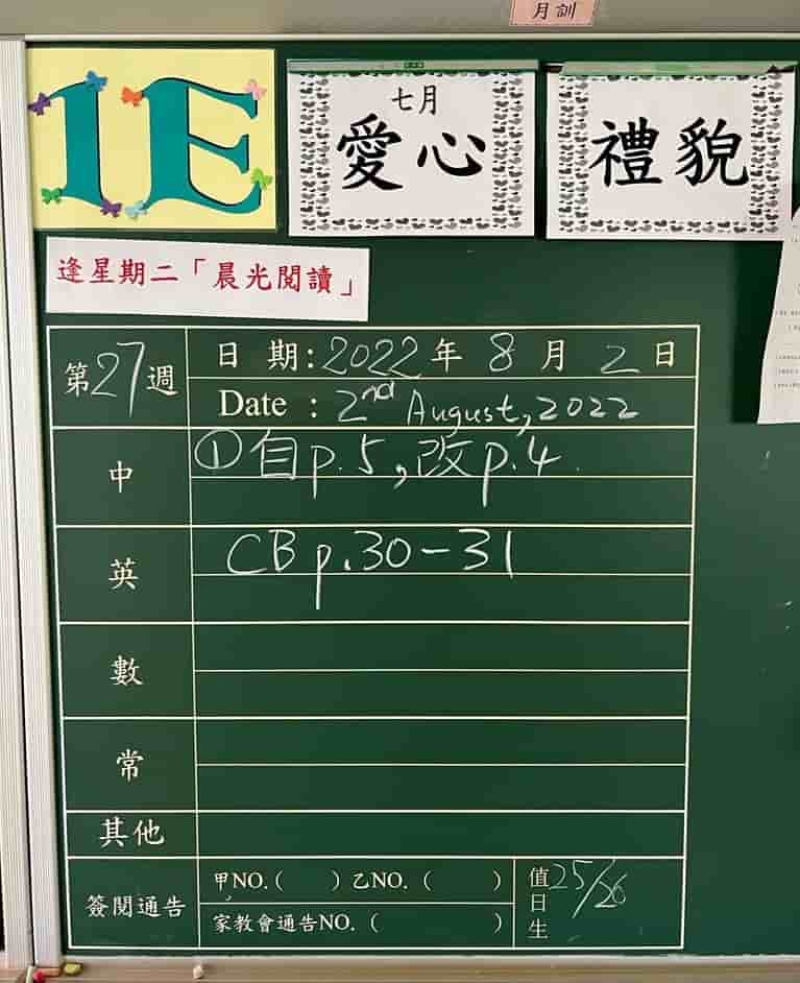 月訓
1E
七月
愛心
禮貌
逢星期二「晨光閱讀」
第27週
日 期:2022年 8 月 2 日
Date : 2nd August, 2022
中
①自p.5,改p.4
英
CB p.30-31
數
常
其他
簽閱通告
甲NO.( )乙NO. ( )
家教會通告NO. ( )
值日生
25/26